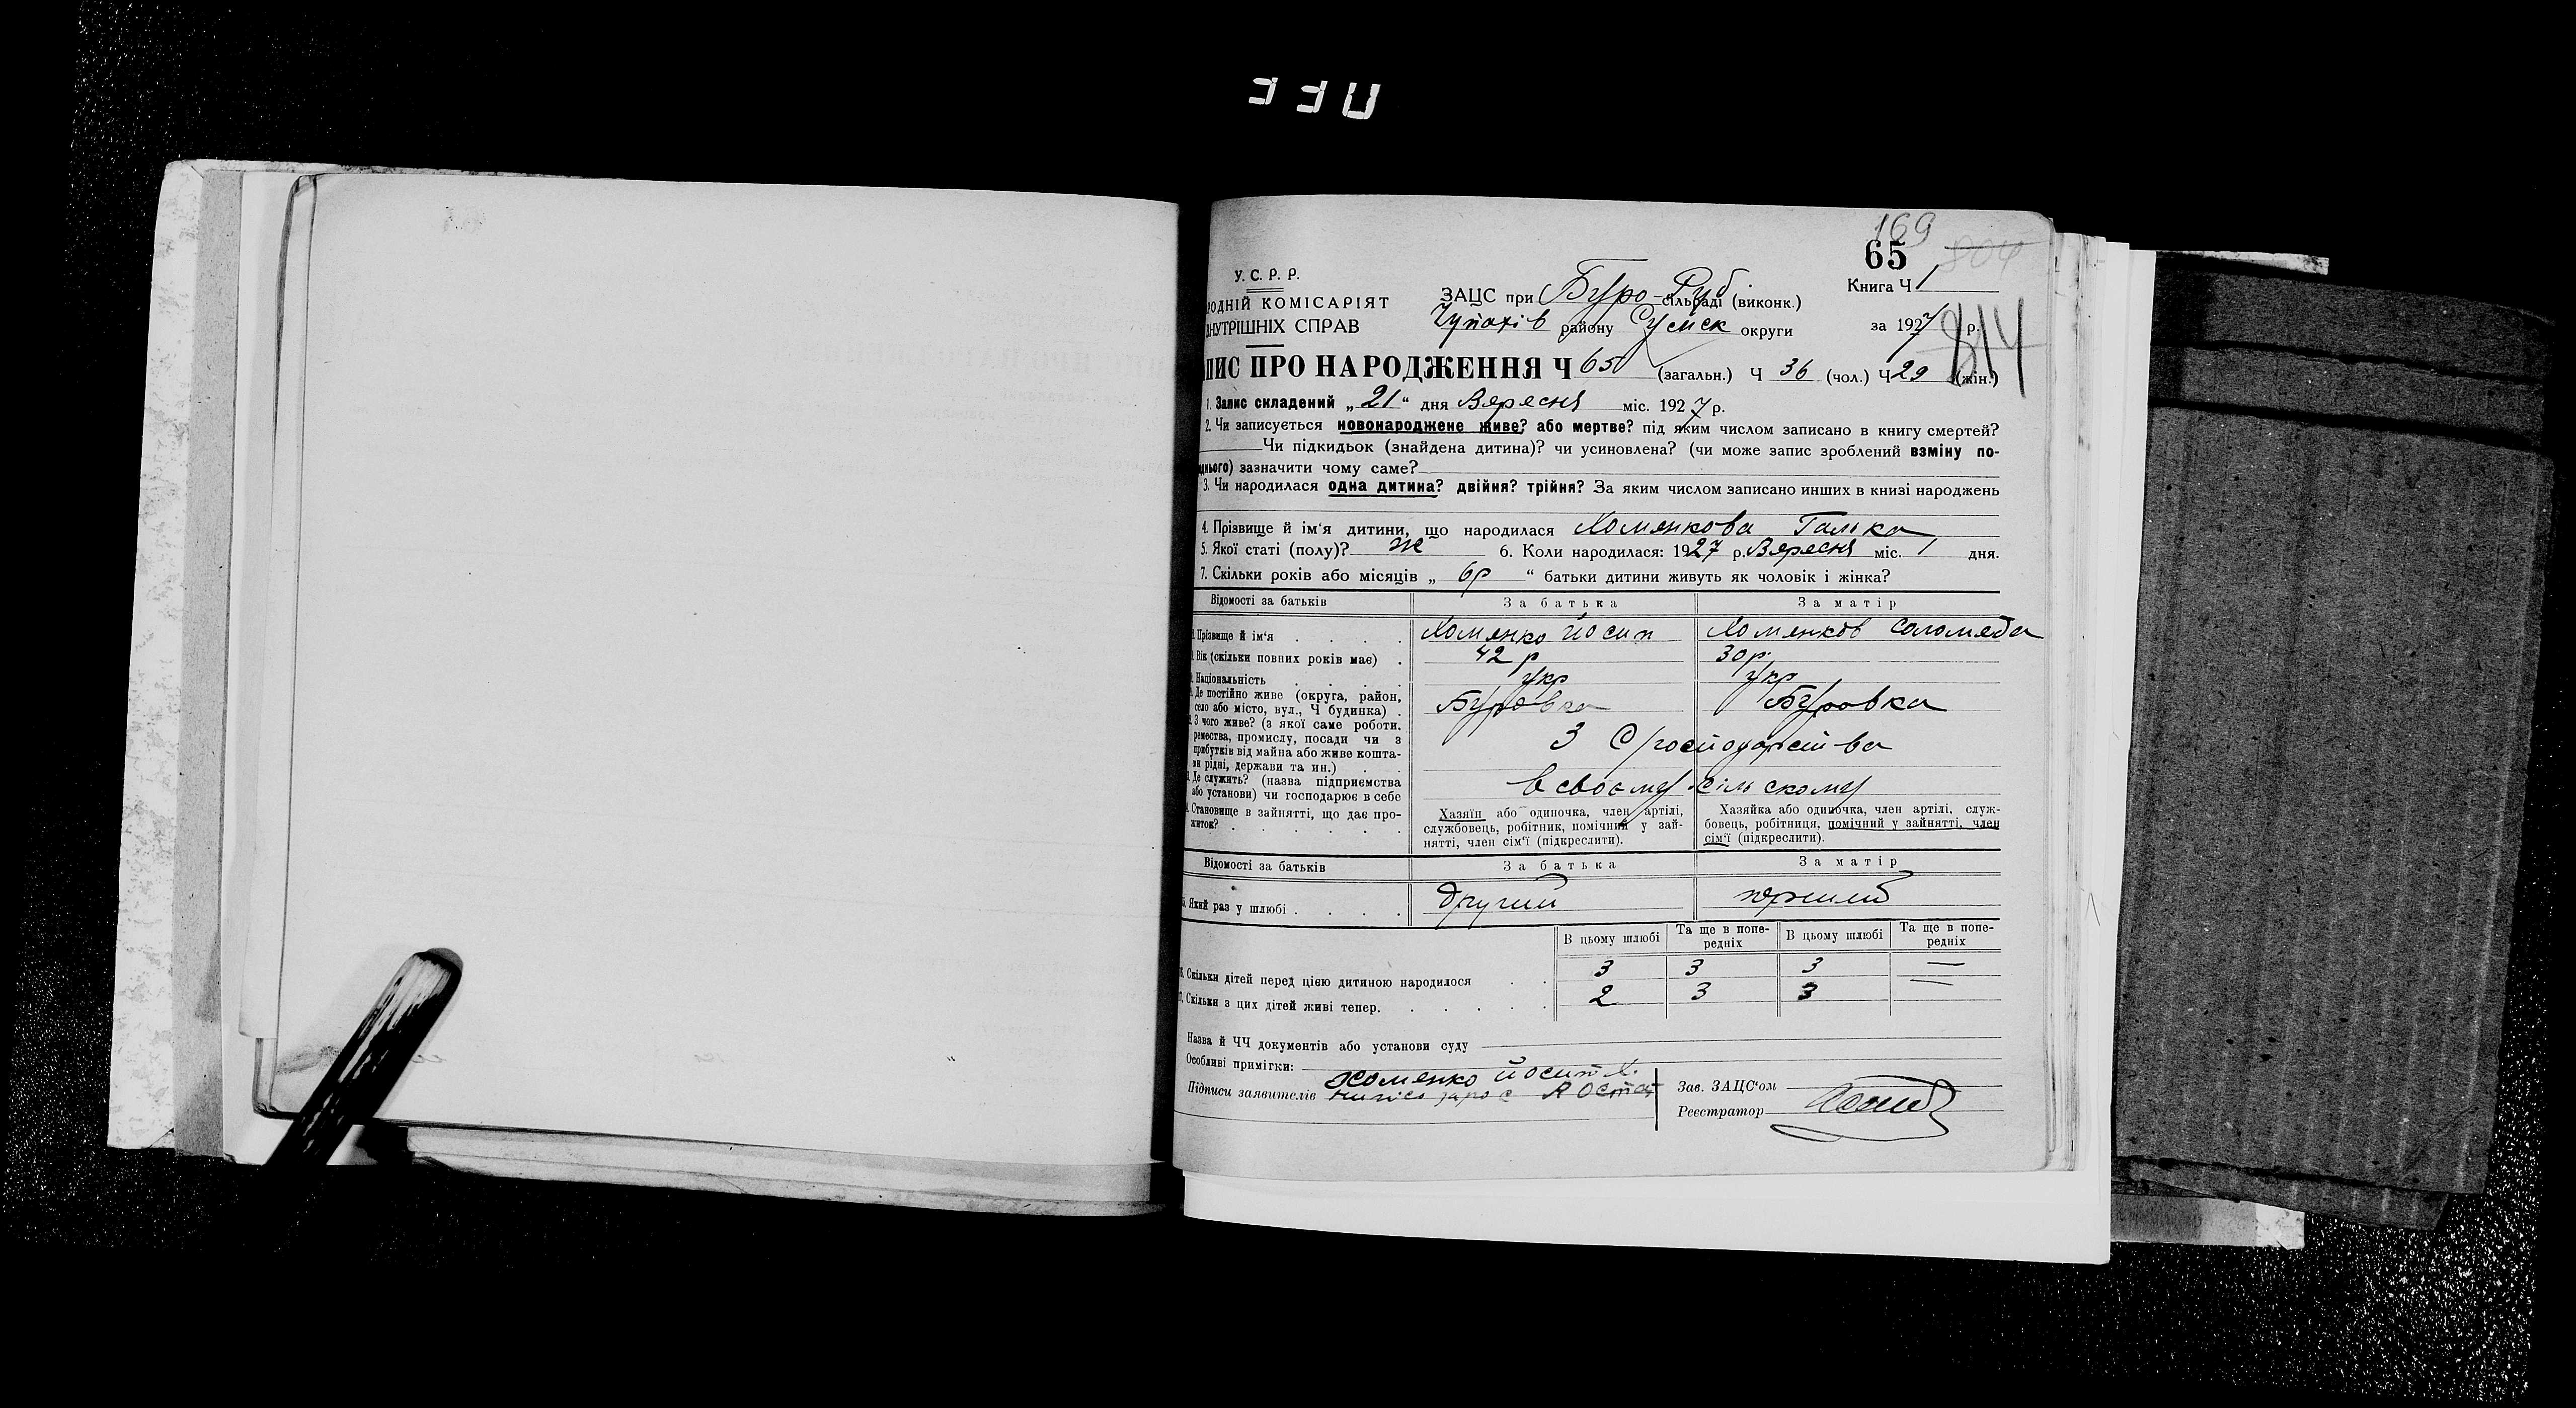 330
169
65
804
У. С. Р. Р.
РОДНІЙ КОМІСАРІЯТ
ВНУТРІШНІХ СПРАВ
ЗАЦС при Буро-Руб сільраді (виконк.)
Книга Ч 1
Чупахів району Сумськ округи
за 1927 р.
814
ПИС ПРО НАРОДЖЕННЯ Ч 65 (загальн.) Ч 36 (чол.) Ч 29 (жін.)
1. Запис складений „ 21 “ дня Вересня міс. 1927 р.
2. Чи записується новонароджене живе? або мертве? під яким числом записано в книгу смертей?
Чи підкидьок (знайдена дитина)? чи усиновлена? (чи може запис зроблений взміну по-
днього) зазначити чому саме?
3. Чи народилася одна дитина? двійня? трійня? За яким числом записано инших в книзі народжень
4. Прізвище й ім‘я дитини, що народилася Хоменкова Галька
5. Якої статі (полу)? ж 6. Коли народилася: 1927 р. Вересня міс. 1 дня.
7. Скільки років або місяців „ 6р “ батьки дитини живуть як чоловік і жінка?
Відомості за батьків За батька За матір
Прізвище й ім‘я Хоменко Йосип Хоменков
Вік (скільки повних років має) 42 р 30 р.
Національність укр укр
Де постійно живе (округа, район, село або місто, вул., Ч будинка) Буровка Буровка
З чого живе? (з якої саме роботи, ремества, промислу, посади чи з прибутків від майна або живе кошта-ми рідні, держави та ин.) З С/господарства
Де служить? (назва підприємства або установи) чи господарює в себе в своєму сільскому
Становище в зайнятті, що дає про-житок?
Хазяїн або одиночка, член артілі, службовець, робітник, помічний у зай-нятті, член сім‘ї (підкреслити).
Хазяйка або одиночка, член артілі, служ-бовець, робітниця, помічний у зайнятті, член сім‘ї (підкреслити).
Відомості за батьків За батька За матір
Який раз у шлюбі другий перший
В цьому шлюбі Та ще в попе-редніх В цьому шлюбі Та ще в попе-редніх
Скільки дітей перед цією дитиною народилося 3 3 3 —
Скільки з цих дітей живі тепер. 2 3 3 —
Назва й ЧЧ документів або установи суду
Особливі примітки:
Підписи заявителів Хоменко Йосип
Зав. ЗАЦС‘ом
Реєстратор